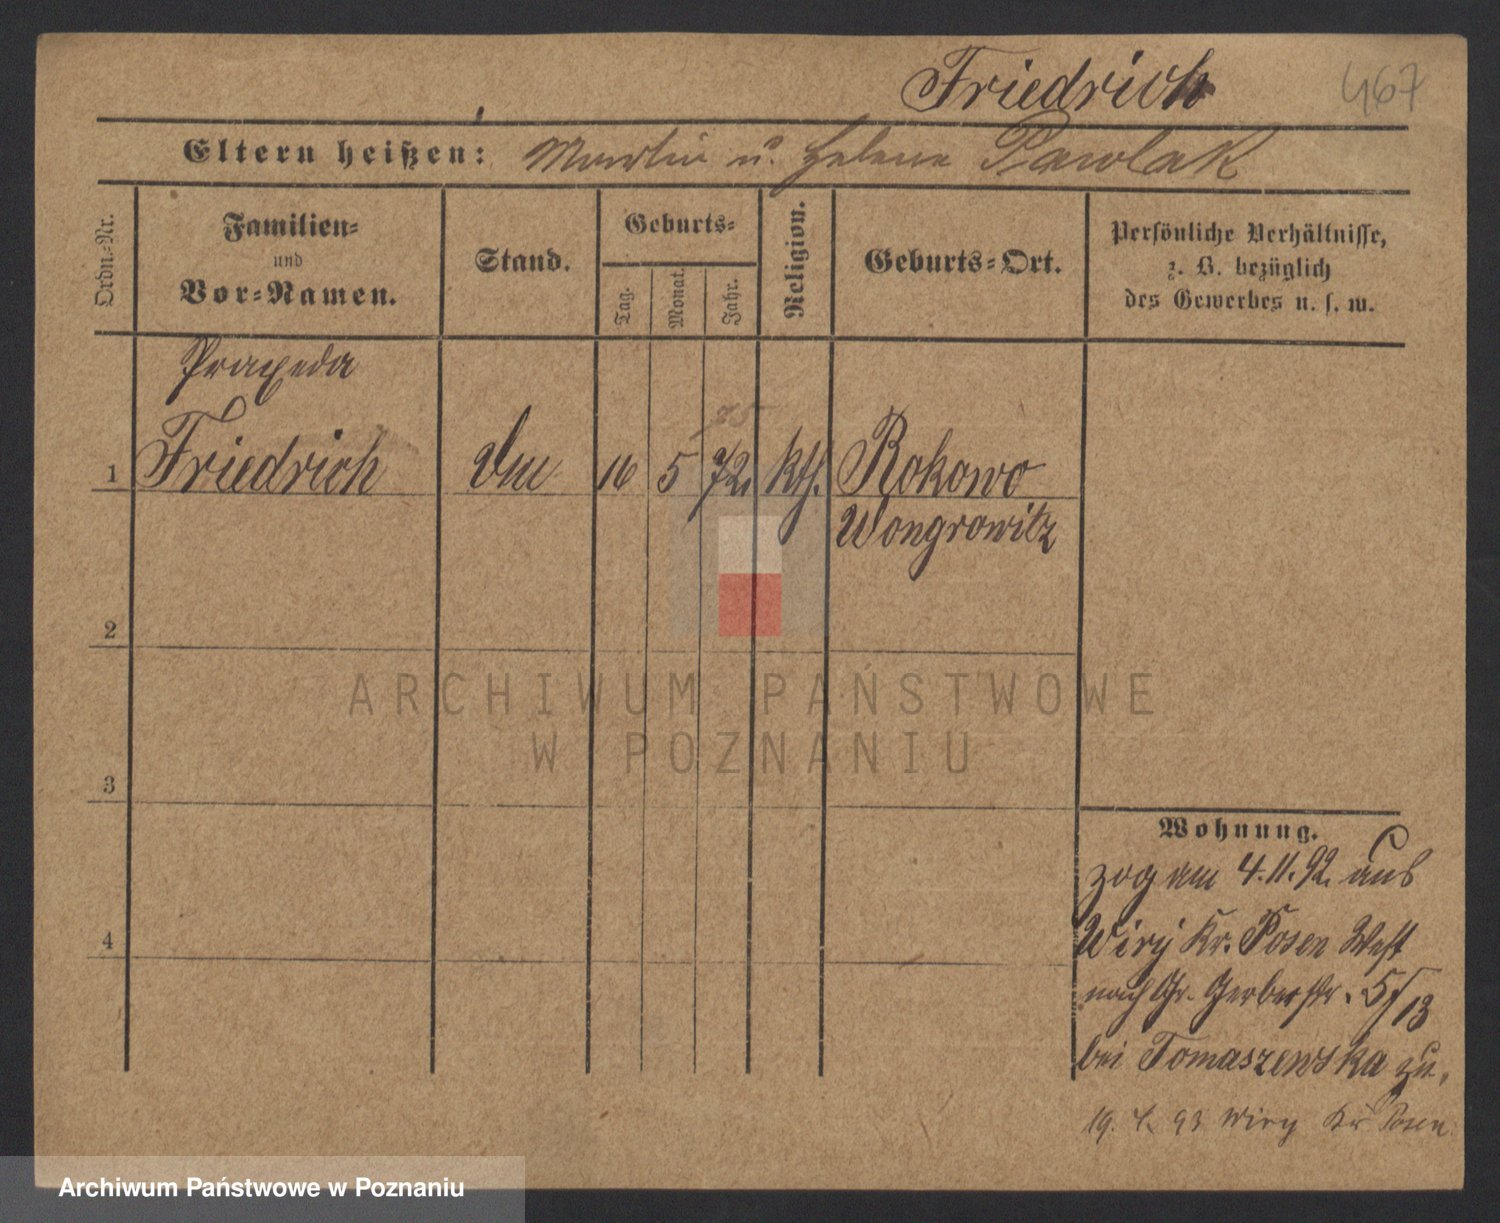 Friedrich
467
Eltern heißen: Martin u. Helene Pawlak
Ordn.-Nr.
Familien-
und
Vor-Namen.
Stand.
Geburts-
Tag.
Monat.
Jahr.
Religion.
Geburts-Ort.
Persönliche Verhältnisse,
z. B. bezüglich
des Gewerbes u. s. w.
Praxeda
75
1 Friedrich 16 5 72. kth. Rokowo
Wongrowitz
2
3
4
Wohnung.
zog am 4.11.92. aus
Wiry Kr. Posen West
nach Gr. Gerberstr. 5/13
bei Tomaszewska zu.
19. 4. 93 Wiry Kr Posen
ARCHIWUM PAŃSTWOWE
W POZNANIU
Archiwum Państwowe w Poznaniu